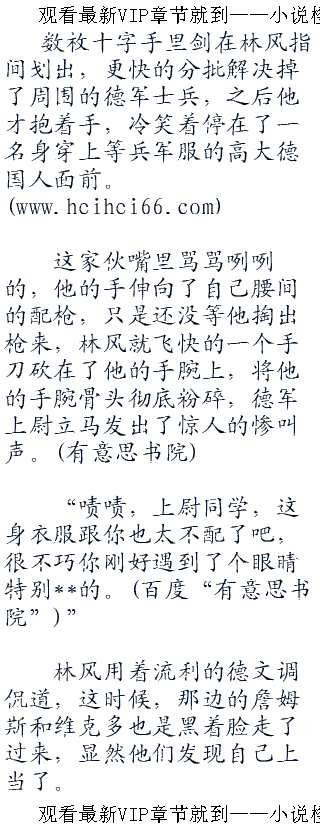 观看最新VIP章节就到——小说
数枚十字手里剑在林风指
间划出，更快的分批解决掉
了周围的德军士兵，之后他
才抱着手，冷笑着停在了一
名身穿上等兵军服的高大德
国人面前。
(www.hcihci66.com)
这家伙嘴里骂骂咧咧
的，他的手伸向了自己腰间
的配枪，只是还没等他掏出
枪来，林风就飞快的一个手
刀砍在了他的手腕上，将他
的手腕骨头彻底粉碎，德军
上尉立马发出了惊人的惨叫
声。(有意思书院)
“啧啧，上尉同学，这
身衣服跟你也太不配了吧，
很不巧你刚好遇到了个眼睛
特别**的。(百度“有意思书
院”)”
林风用着流利的德文调
侃道，这时候，那边的詹姆
斯和维克多也是黑着脸走了
过来，显然他们发现自己上
当了。
观看最新VIP章节就到——小说